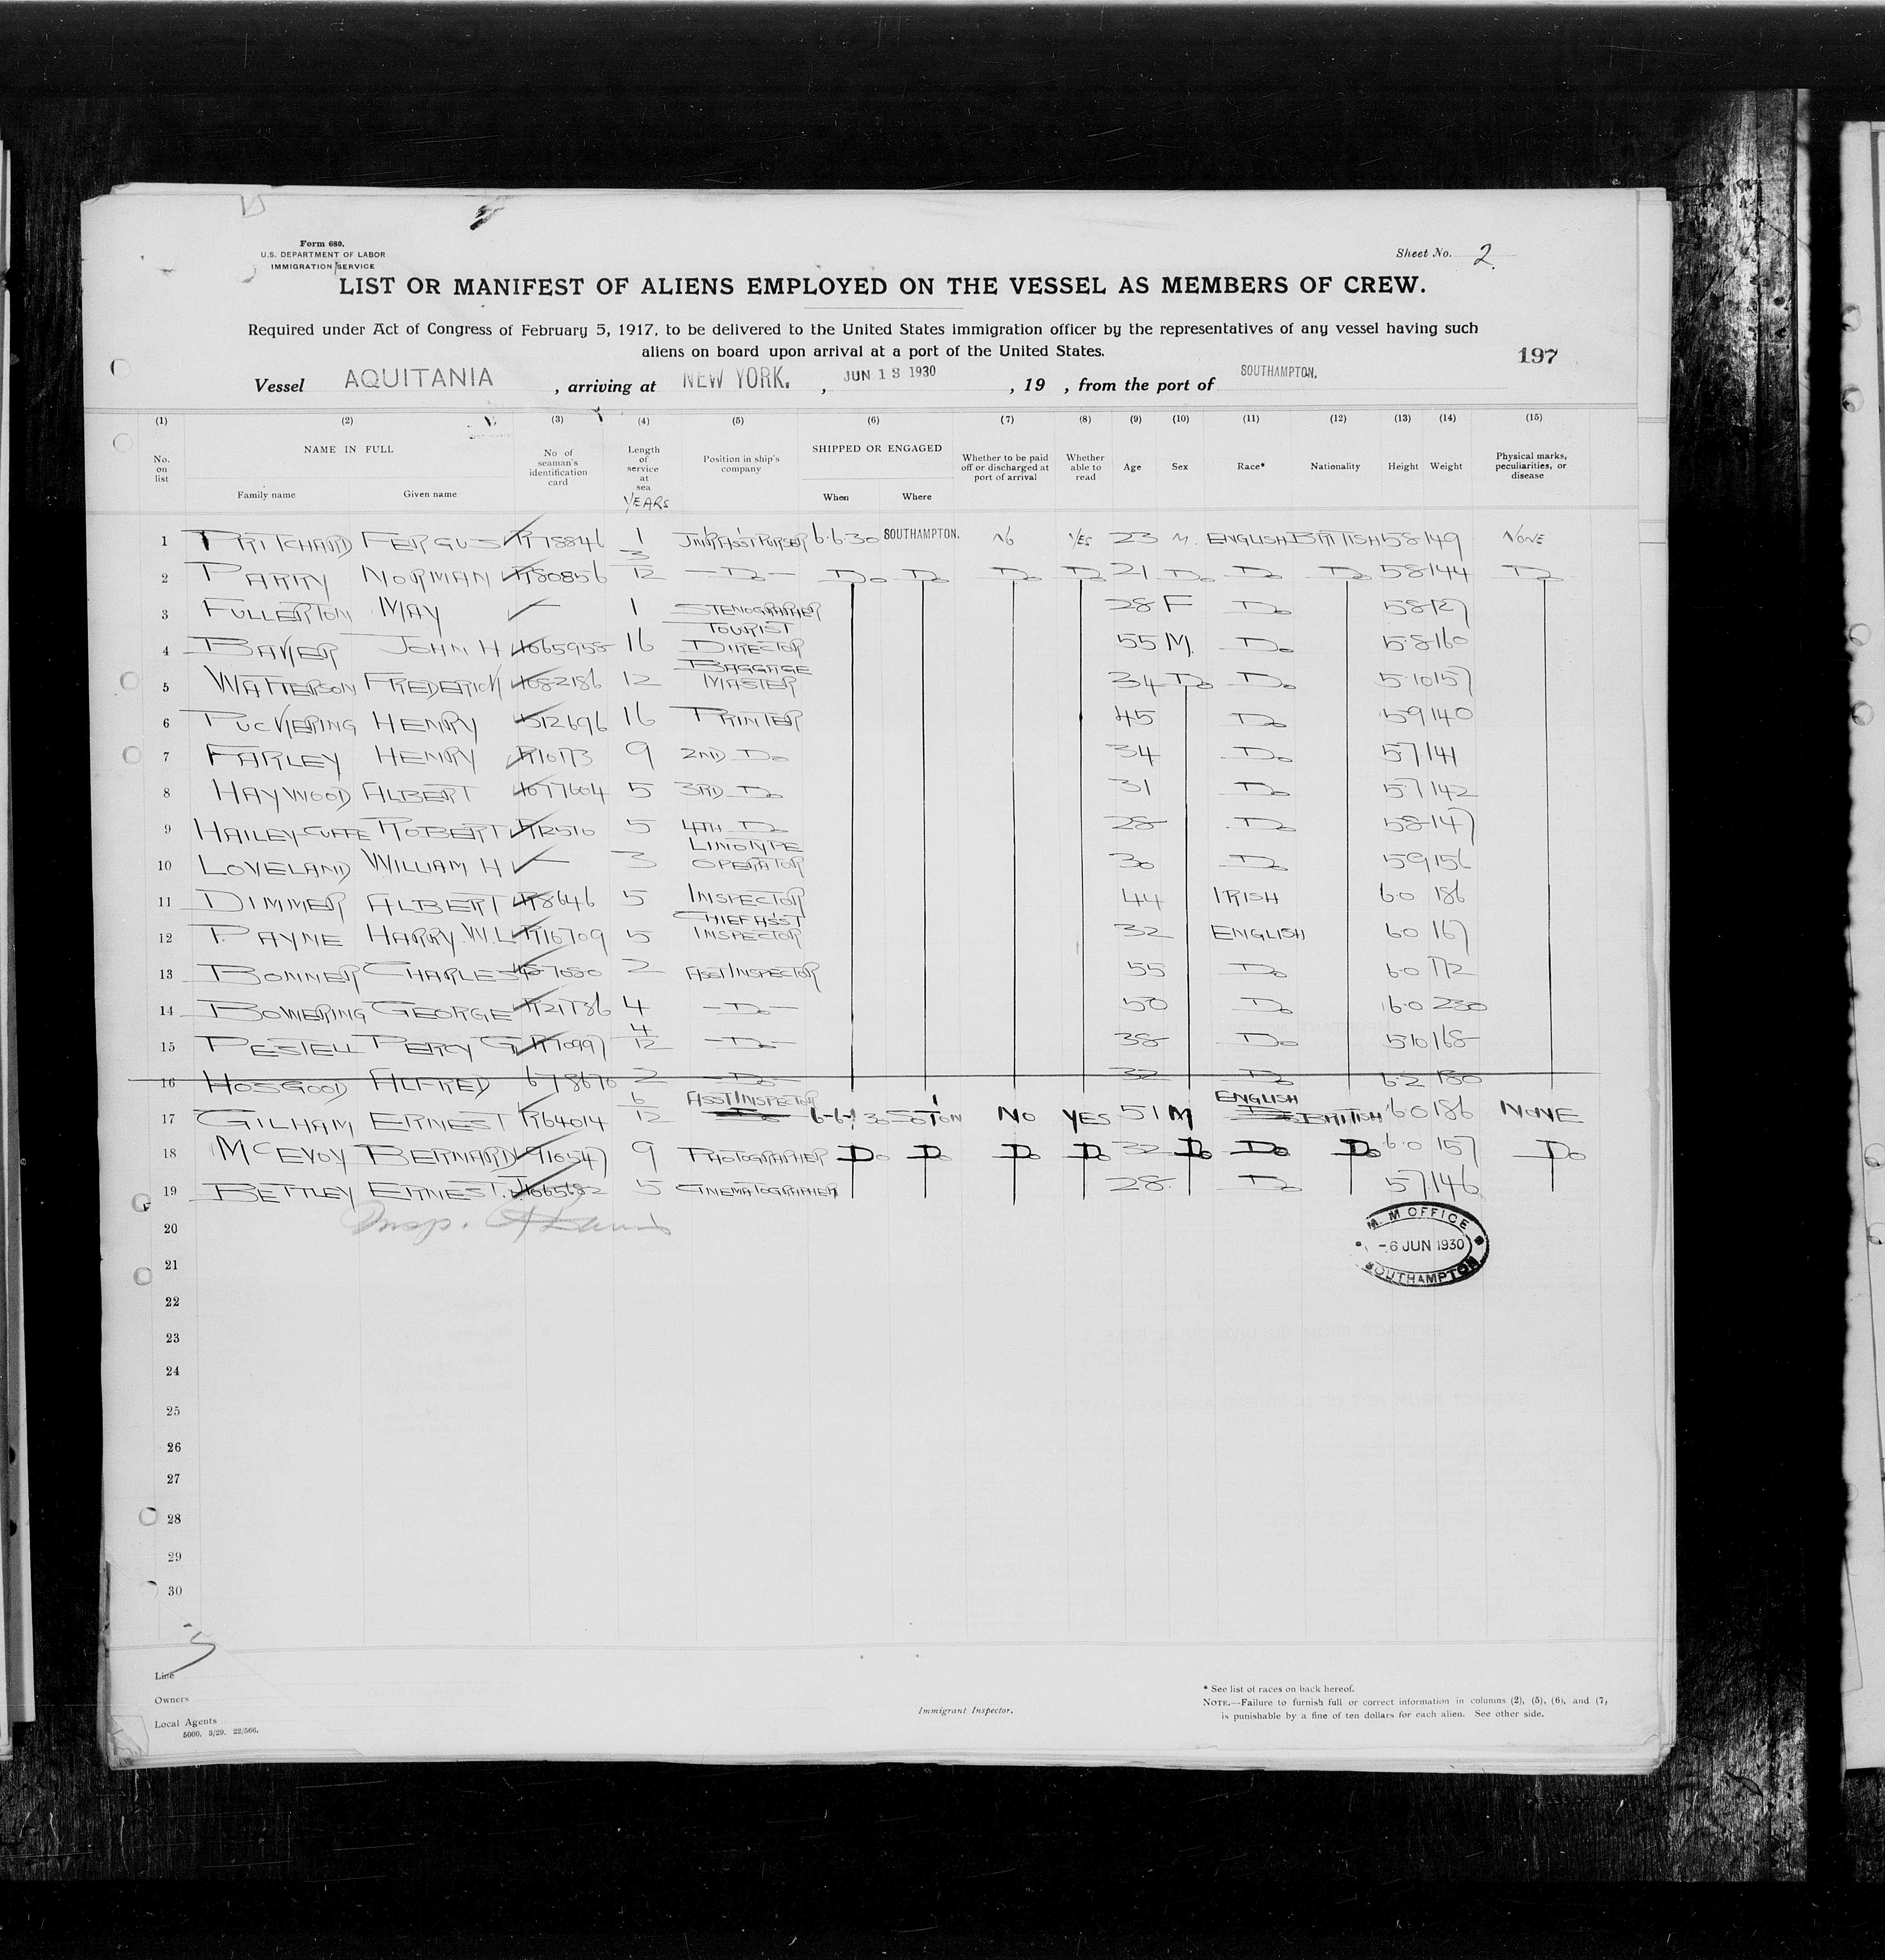 Form 680.
U.S. DEPARTMENT OF LABOR
IMMIGRATION SERVICE
Sheet No. 2.
LIST OR MANIFEST OF ALIENS EMPLOYED ON THE VESSEL AS MEMBERS OF CREW.
Required under Act of Congress of February 5, 1917, to be delivered to the United States immigration officer by the representatives of any vessel having such
aliens on board upon arrival at a port of the United States.
197
Vessel AQUITANIA, arriving at NEW YORK., JUN 13 1930, 19 , from the port of SOUTHAMPTON.
(1) (2) (3) (4) (5) (6) (7) (8) (9) (10) (11) (12) (13) (14) (15)
No. on list NAME IN FULL Family name Given name No of seaman's identification card Length of service at sea YEARS Position in ship's company SHIPPED OR ENGAGED When Where Whether to be paid off or discharged at port of arrival Whether able to read Age Sex Race* Nationality Height Weight Physical marks, peculiarities, or disease
1 PRITCHARD FERGUS R78846 1 JNR ASST PURSER 6.6.30 SOUTHAMPTON. NO YES 23 M. ENGLISH BRITISH 58 149 NONE
2 PARRY NORMAN R80856 3/12 —Do— Do Do Do Do 21 Do Do Do 58 144 Do
3 FULLERTON MAY — 1 STENOGRAPHER 28 F Do 58 127
4 BAKER JOHN H 1065958 16 TOURIST DIRECTOR 55 M. Do 5.8 160
5 WATTERSON FREDERICK 1082186 12 BAGGAGE MASTER 34 Do Do 5.10 157
6 PUCKERING HENRY 512696 16 PRINTER 45 Do 59 140
7 FARLEY HENRY R16173 9 2ND Do 34 Do 57 141
8 HAYWOOD ALBERT 1077604 5 3RD Do 31 Do 57 142
9 HAILEY-CUFFE ROBERT R2510 5 4TH Do 28 Do 58 147
10 LOVELAND WILLIAM H — 3 LINOTYPE OPERATOR 30 Do 59 156
11 DIMMER ALBERT R8646 5 INSPECTOR 44 IRISH 6.0 186
12 PAYNE HARRY W.L R16709 5 CHIEF ASST INSPECTOR 32 ENGLISH 60 167
13 BONNER CHARLES 2 ASST INSPECTOR 55 Do 6.0 172
14 BOWERING GEORGE R21786 4 —Do— 50 Do 6.0 230
15 PESTELL PERCY G 4/12 —Do— 38 Do 510 168
16 HOSGOOD ALFRED 678670 2 —Do— 32 Do 6.2 180
17 GILHAM ERNEST R64014 6/12 ASST INSPECTOR 6-6-30 SO'TON NO YES 51 M ENGLISH BRITISH 6.0 186 NONE
18 McEVOY BERNARD 910547 9 PHOTOGRAPHER Do Do Do Do 32 Do Do Do 6.0 157 Do
19 BETTLEY ERNEST. J. 1065682 5 CINEMATOGRAPHER 28. Do 57 146
20 Insp.
M. M OFFICE
-6 JUN 1930
SOUTHAMPTON
21
22
23
24
25
26
27
28
29
30
Line
Owners
Local Agents
5000. 3/29. 22/566.
Immigrant Inspector.
* See list of races on back hereof.
NOTE.—Failure to furnish full or correct information in columns (2), (5), (6), and (7)
is punishable by a fine of ten dollars for each alien. See other side.